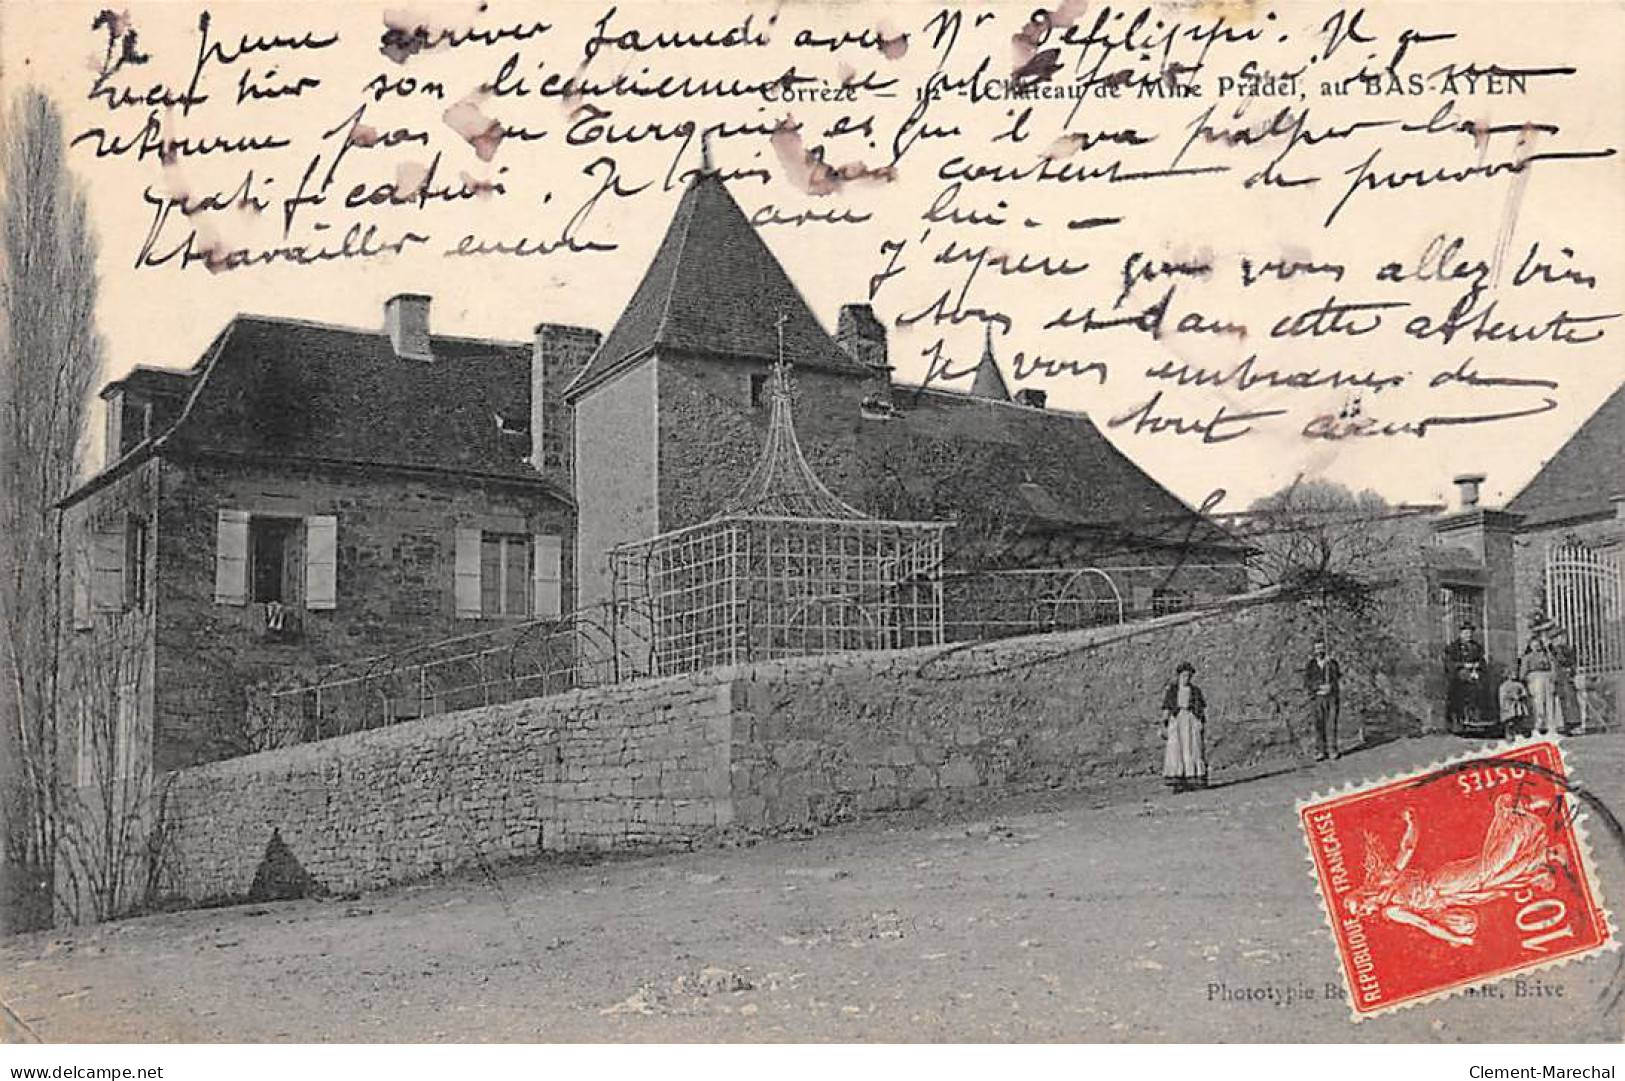 Je pense arriver samedi avec Mr Defilippi. Il a
reçu hier son licenciement ce qui fait qu'il ne
retourne pas en Turquie et qu'il va palper la
gratification. Je suis très content de pouvoir
travailler encore avec lui. -
J'espère que vous allez bien
tous et dans cette attente
je vous embrasse de
tout cœur
Corrèze - 12 - Château de Mme Pradel, au BAS-AYEN
POSTES
REPUBLIQUE FRANÇAISE
10c
YEN
Phototypie Brive
delcampe.net
Clement-Marechal